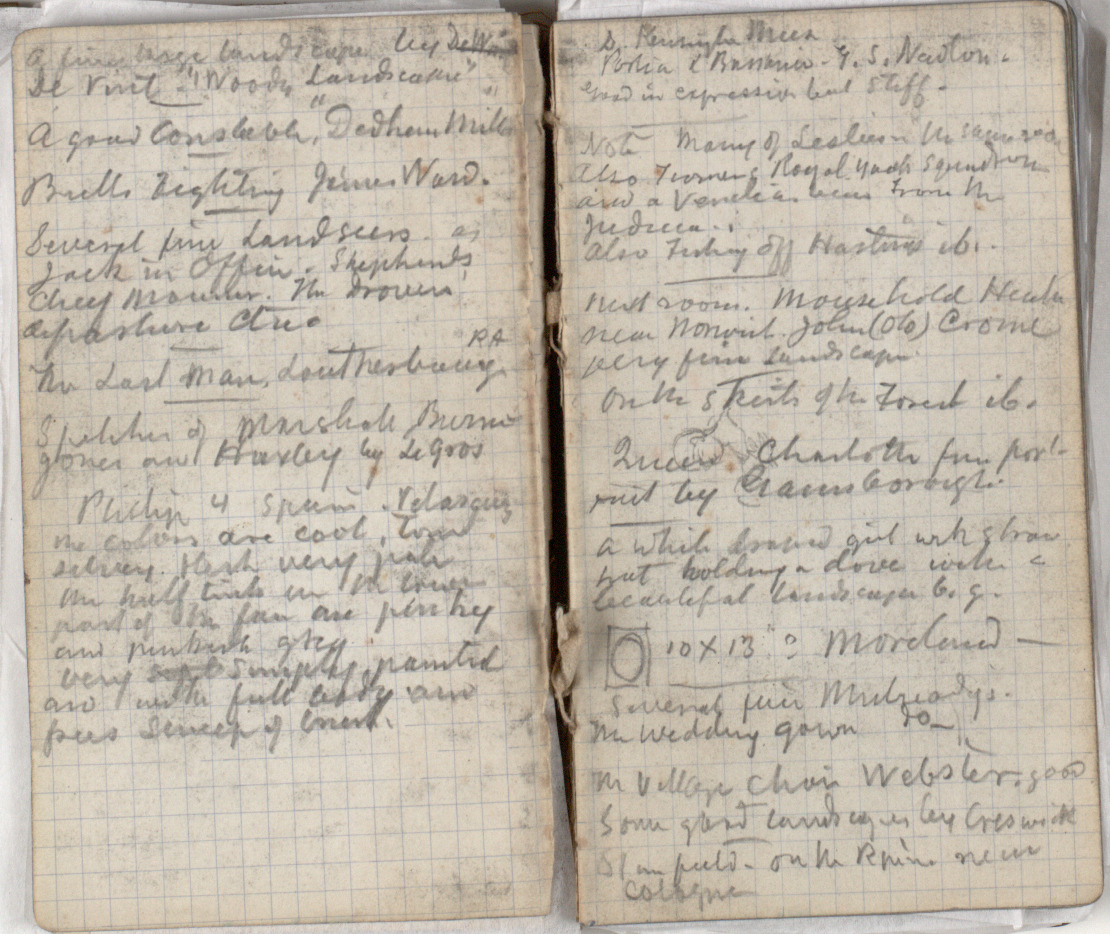 A fine large landscape by De Wint
De Wint "Woody Landscape"
A good Constable, "Dedham Mill"
Bulls Fighting James Ward.
Several fine Landseers. as
Jack in Office. Shepherds
Cheef Mourner. The Drovers'
departure etc.
RA
The Last Man, Loutherbourg
Sketches of Marshall Burne
Jones and Huxley by LeGros
Philip 4 Spain. Velasquez
the colors are cool, tone
silvery. Flesh very pale
the half tints in the lower
part of the face are pinky
and pinkish grey
very simply painted
and with full body and
free sweep of brush.
S. Kensington Museum
Portia & Bassanio - G. S. Newton.
Good in expression but stiff.
Note Many of Leslies in the same room
Also Turners Royal Yacht Squadron
and a Venetian view from the
Judecca.
Also Fishing off Hastings ib.
next room. Mousehold Heath
near Norwich. John (Old) Crome
very fine landscape
On the Skirts of the Forest ib.
Queen Charlotte fine port-
rait by Gainsborough.
A white dressed girl with straw
hat holding a dove with a
beautiful landscape b. g.
10 x 13" ? Moreland —
Several fine Mulreadys.
The Wedding gown Do —
The Village Choir Webster. good
Some good landscapes by Creswick
Stanfield - on the Rhine near
Cologne